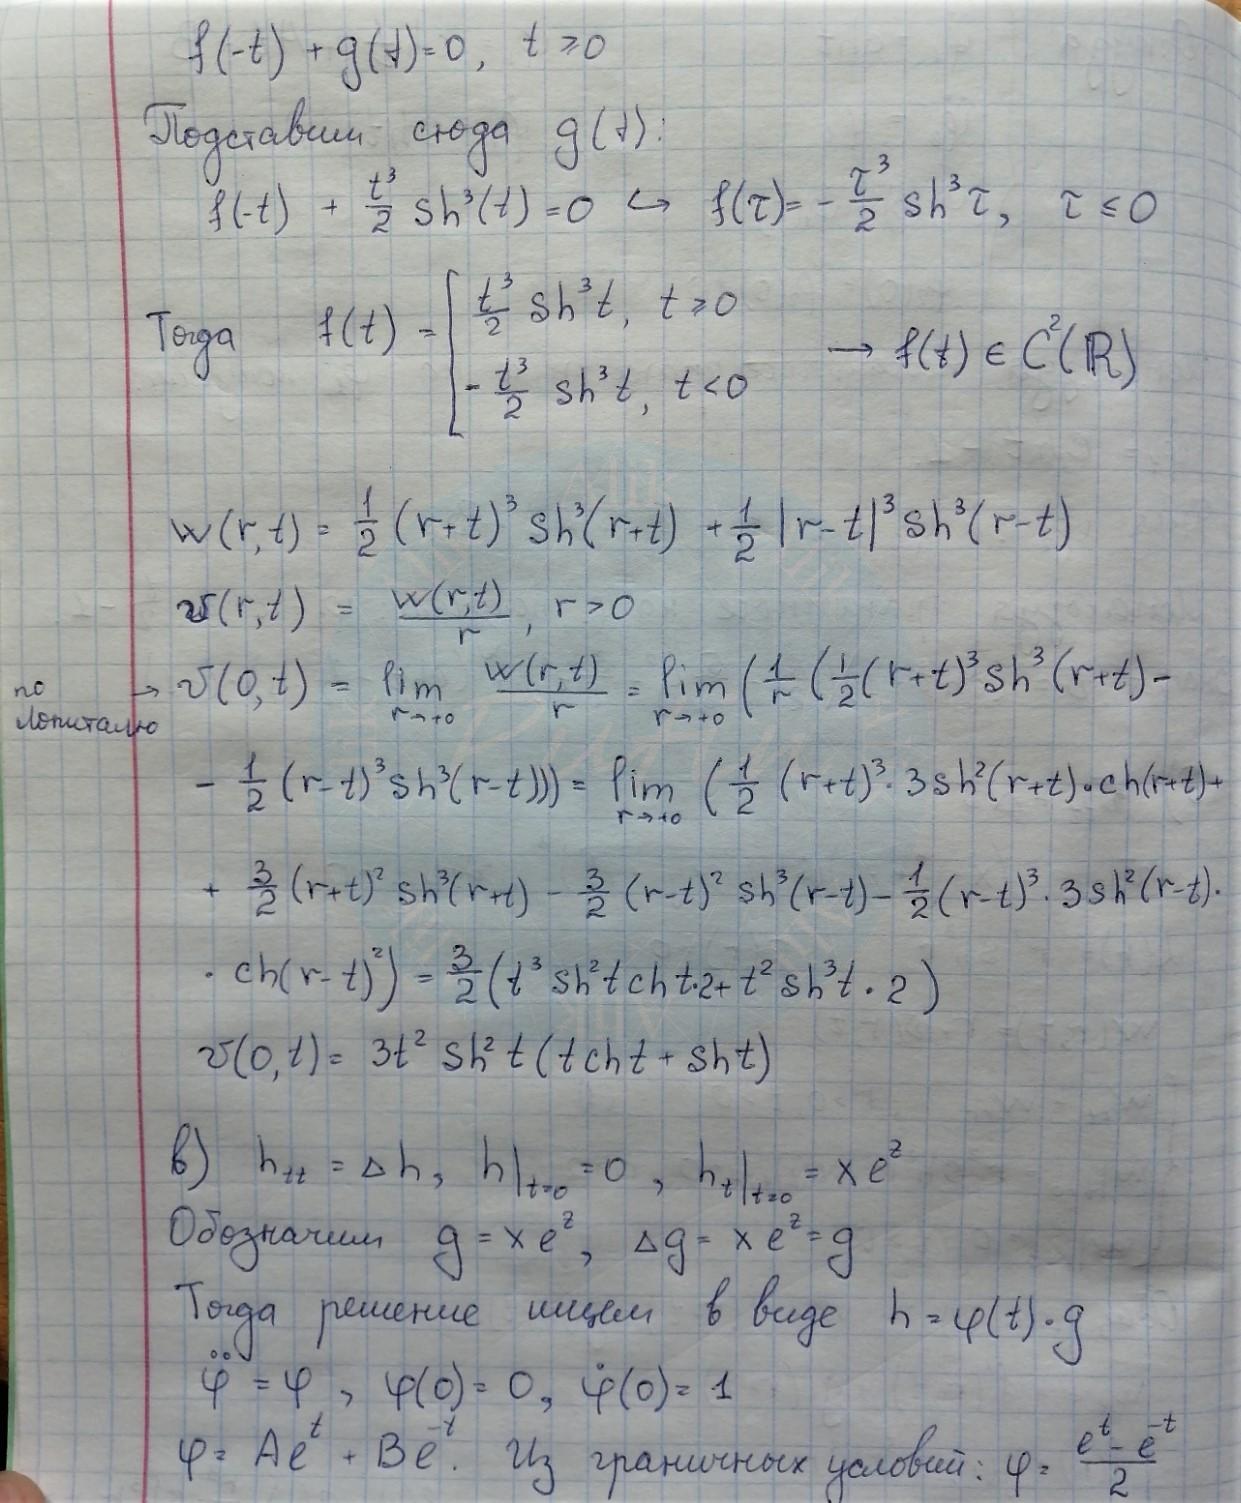 f(-t) + g(t)=0, t ≥ 0
Подставим сюда g(t):
f(-t) + t³/2 sh³(t) = 0 ↪ f(τ) = - τ³/2 sh³τ, τ ≤ 0
Тогда f(t) = [ t³/2 sh³t, t ≥ 0
- t³/2 sh³t, t < 0 → f(t) ∈ C²(ℝ)
w(r,t) = 1/2 (r+t)³ sh³(r+t) + 1/2 |r-t|³ sh³(r-t)
v(r,t) = w(r,t)/r, r > 0
по Лопиталю → v(0,t) = lim_{r→+0} w(r,t)/r = lim_{r→+0} (1/r (1/2 (r+t)³ sh³(r+t) -
- 1/2 (r-t)³ sh³(r-t))) = lim_{r→+0} (1/2 (r+t)³ · 3sh²(r+t) · ch(r+t) +
+ 3/2 (r+t)² sh³(r+t) - 3/2 (r-t)² sh³(r-t) - 1/2 (r-t)³ · 3sh²(r-t) ·
· ch(r-t)²) = 3/2 (t³ sh²t ch t·2 + t² sh³t · 2)
v(0,t) = 3t² sh² t (t ch t + sh t)
в) h_tt = Δh, h|_{t=0} = 0, h_t|_{t=0} = x e^z
Обозначим g = x e^z, Δg = x e^z = g
Тогда решение ищем в виде h = φ(t) · g
φ̈ = φ, φ(0) = 0, φ̇(0) = 1
φ = Ae^t + Be^-t. Из граничных условий: φ = (e^t - e^-t)/2